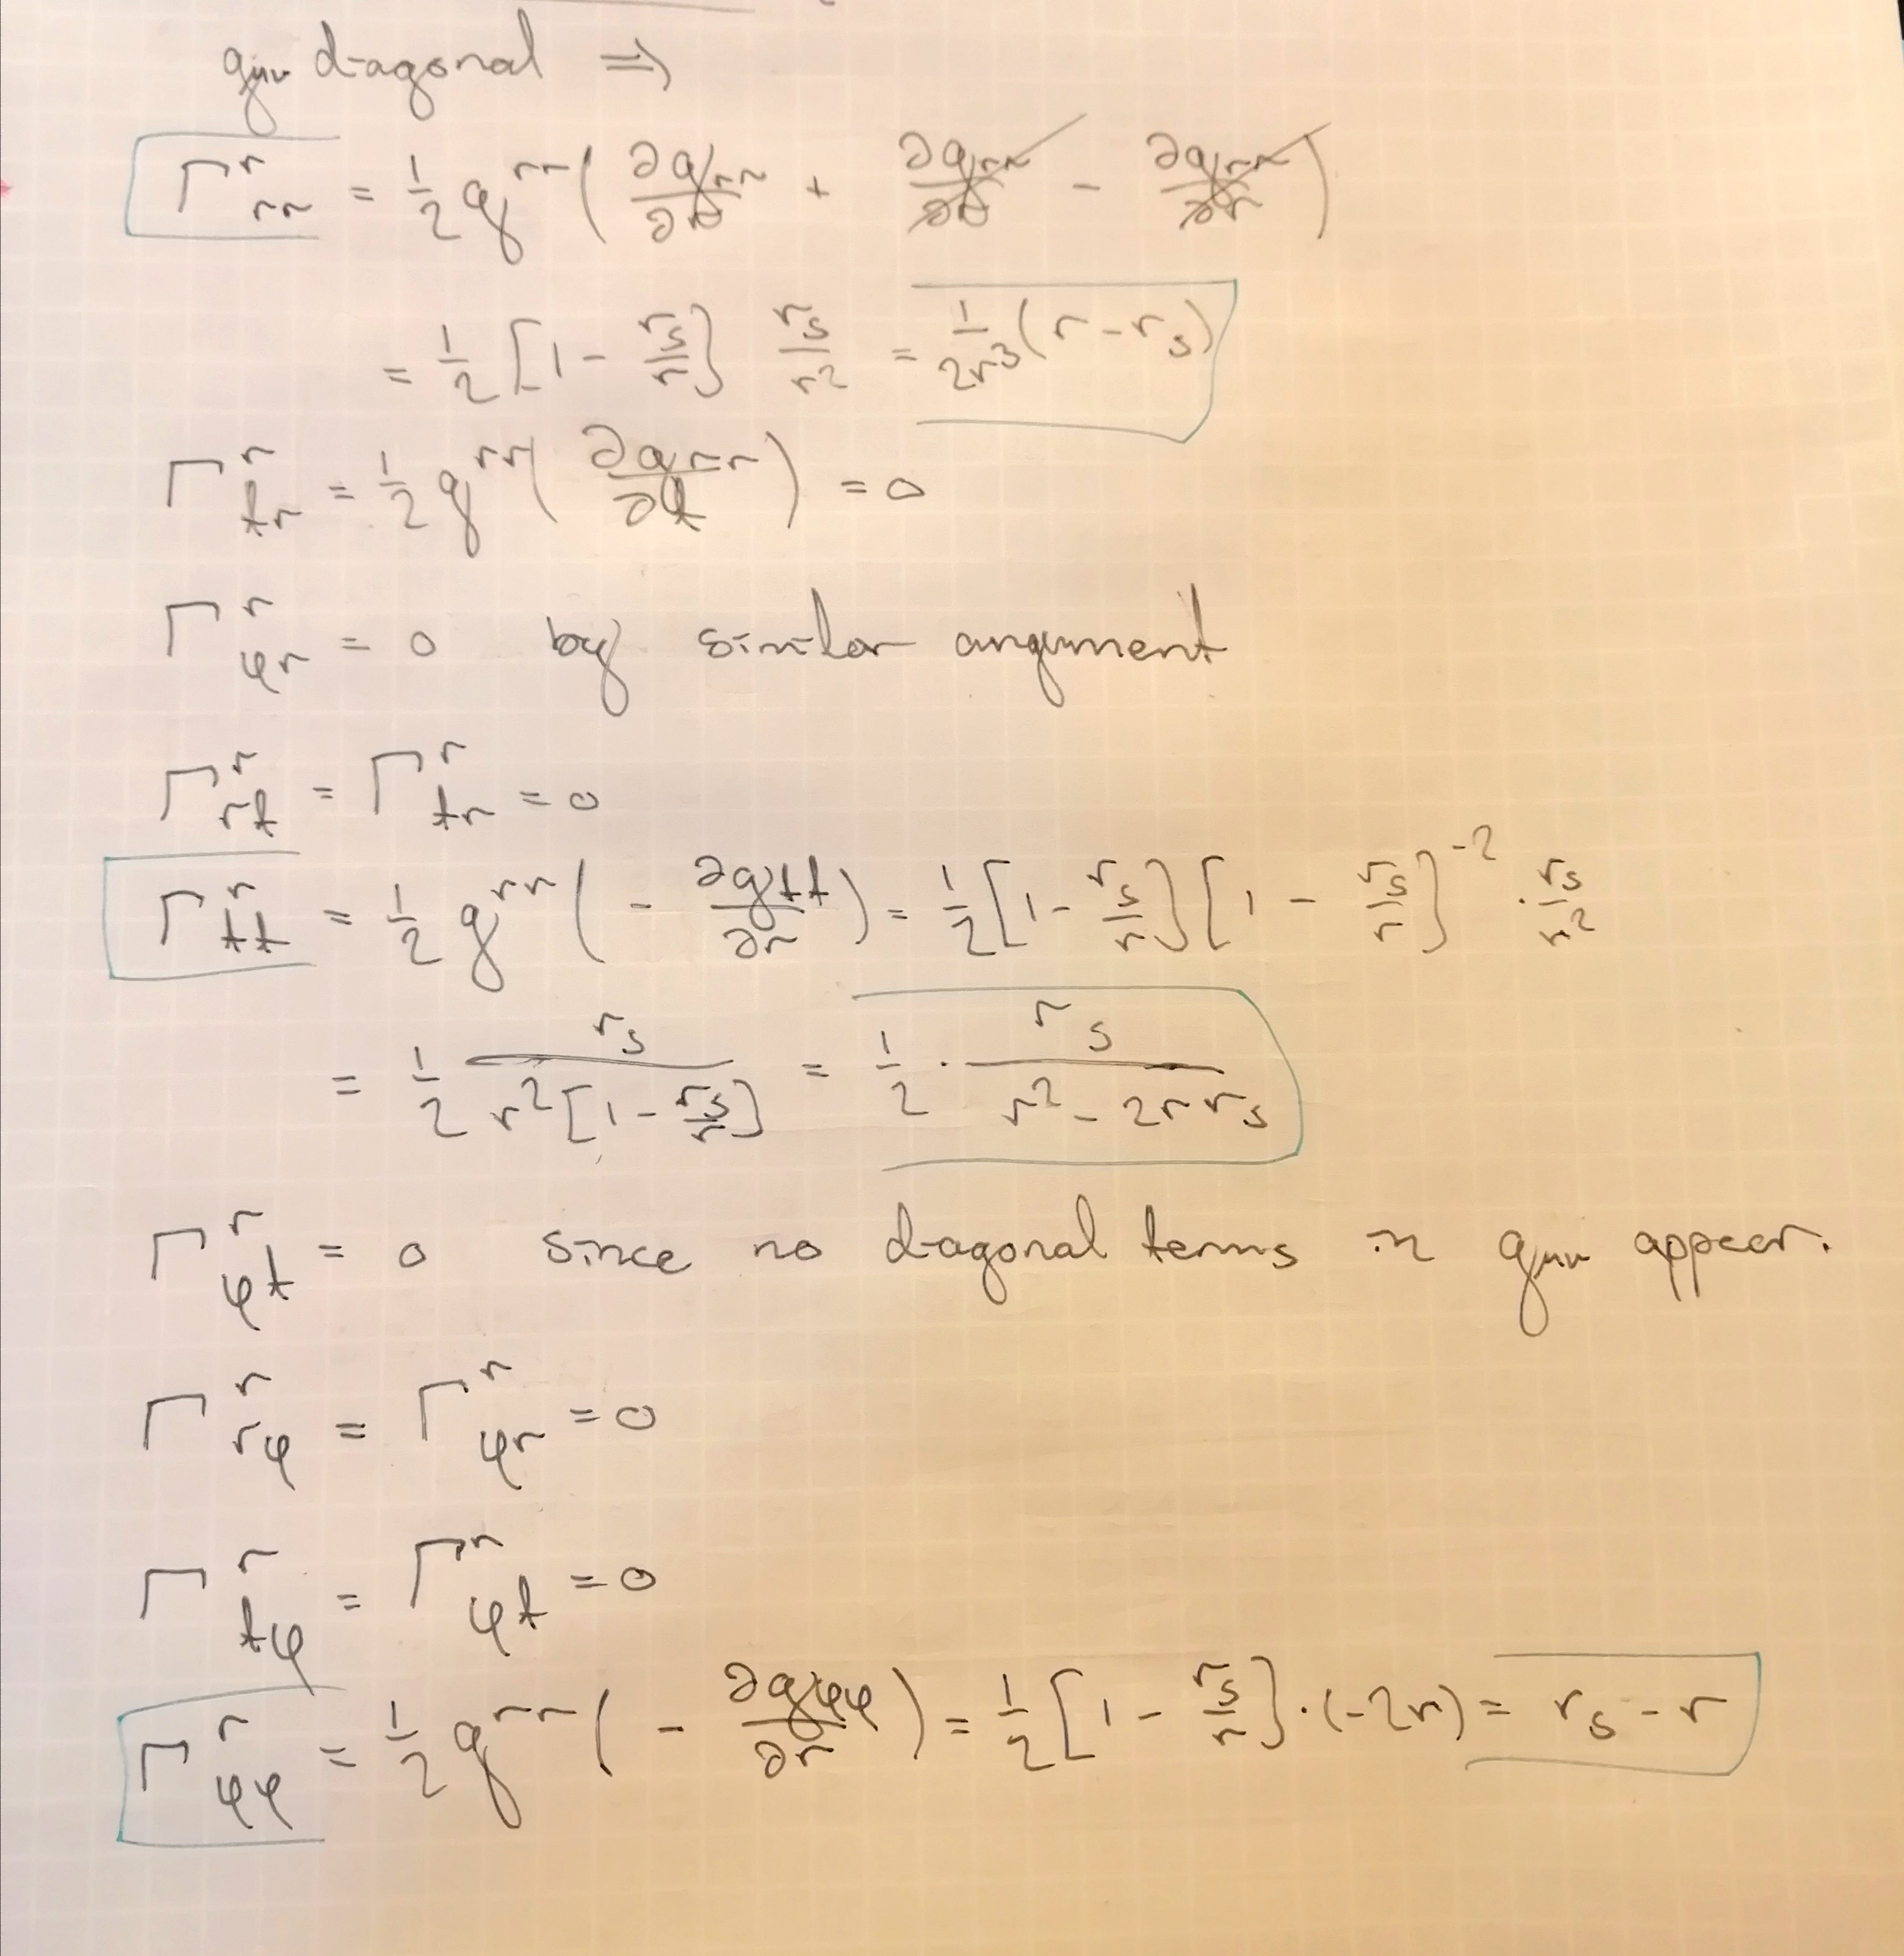 g_μν diagonal ⇒
Γ^r_rr = 1/2 g^rr ( ∂g_rr/∂r + ∂g_rr/∂r - ∂g_rr/∂r )
= 1/2 [1 - r_s/r] r_s/r^2 = 1/2r^3 (r - r_s)
Γ^r_tr = 1/2 g^rr ( ∂g_rr/∂t ) = 0
Γ^r_φr = 0 by similar argument
Γ^r_rt = Γ^r_tr = 0
Γ^r_tt = 1/2 g^rr ( - ∂g_tt/∂r ) = 1/2 [1 - r_s/r] [1 - r_s/r]^-2 · r_s/r^2
= 1/2 r_s/r^2[1 - r_s/r] = 1/2 · r_s/r^2 - 2r r_s
Γ^r_φt = 0 since no diagonal terms in g_μν appear.
Γ^r_rφ = Γ^r_φr = 0
Γ^r_tφ = Γ^r_φt = 0
Γ^r_φφ = 1/2 g^rr ( - ∂g_φφ/∂r ) = 1/2 [1 - r_s/r] · (-2r) = r_s - r